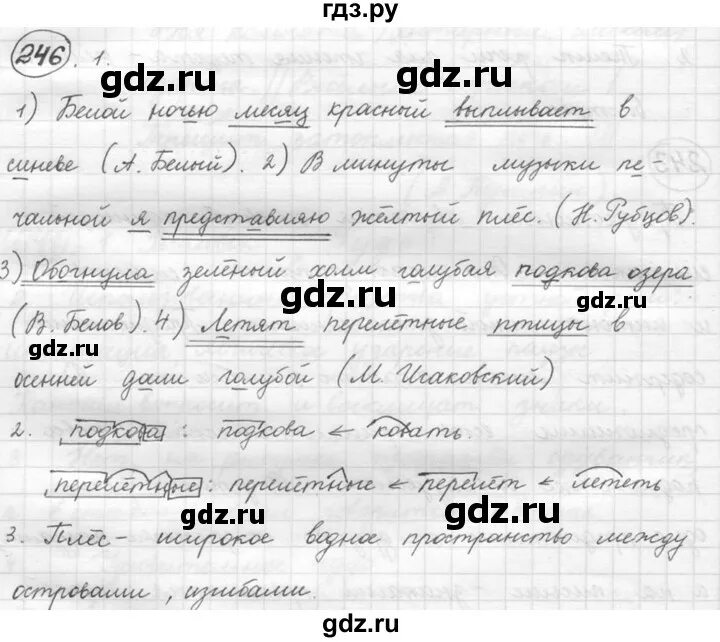 гдз.ру
246. 1.
gdz.ru gdz.ru
1) Белой ночью месяц красный выплывает в
синеве (А. Белый). 2) В минуты музыки пе-
gdz.ru
чальной я представляю жёлтый плёс. (Н. Рубцов).
3) Обогнула зелёный холм голубая подкова озера
gdz.ru gdz.ru
(В. Белов). 4) Летят перелётные птицы в
gdz.ru
осенней дали голубой (М. Исаковский)
gdz.ru
2. подкова : подкова ← ковать.
перелётные : перелётные ← перелёт ← лететь
gdz.ru gdz.ru
3. Плёс - широкое водное пространство между
островами, изгибами.
gdz.ru